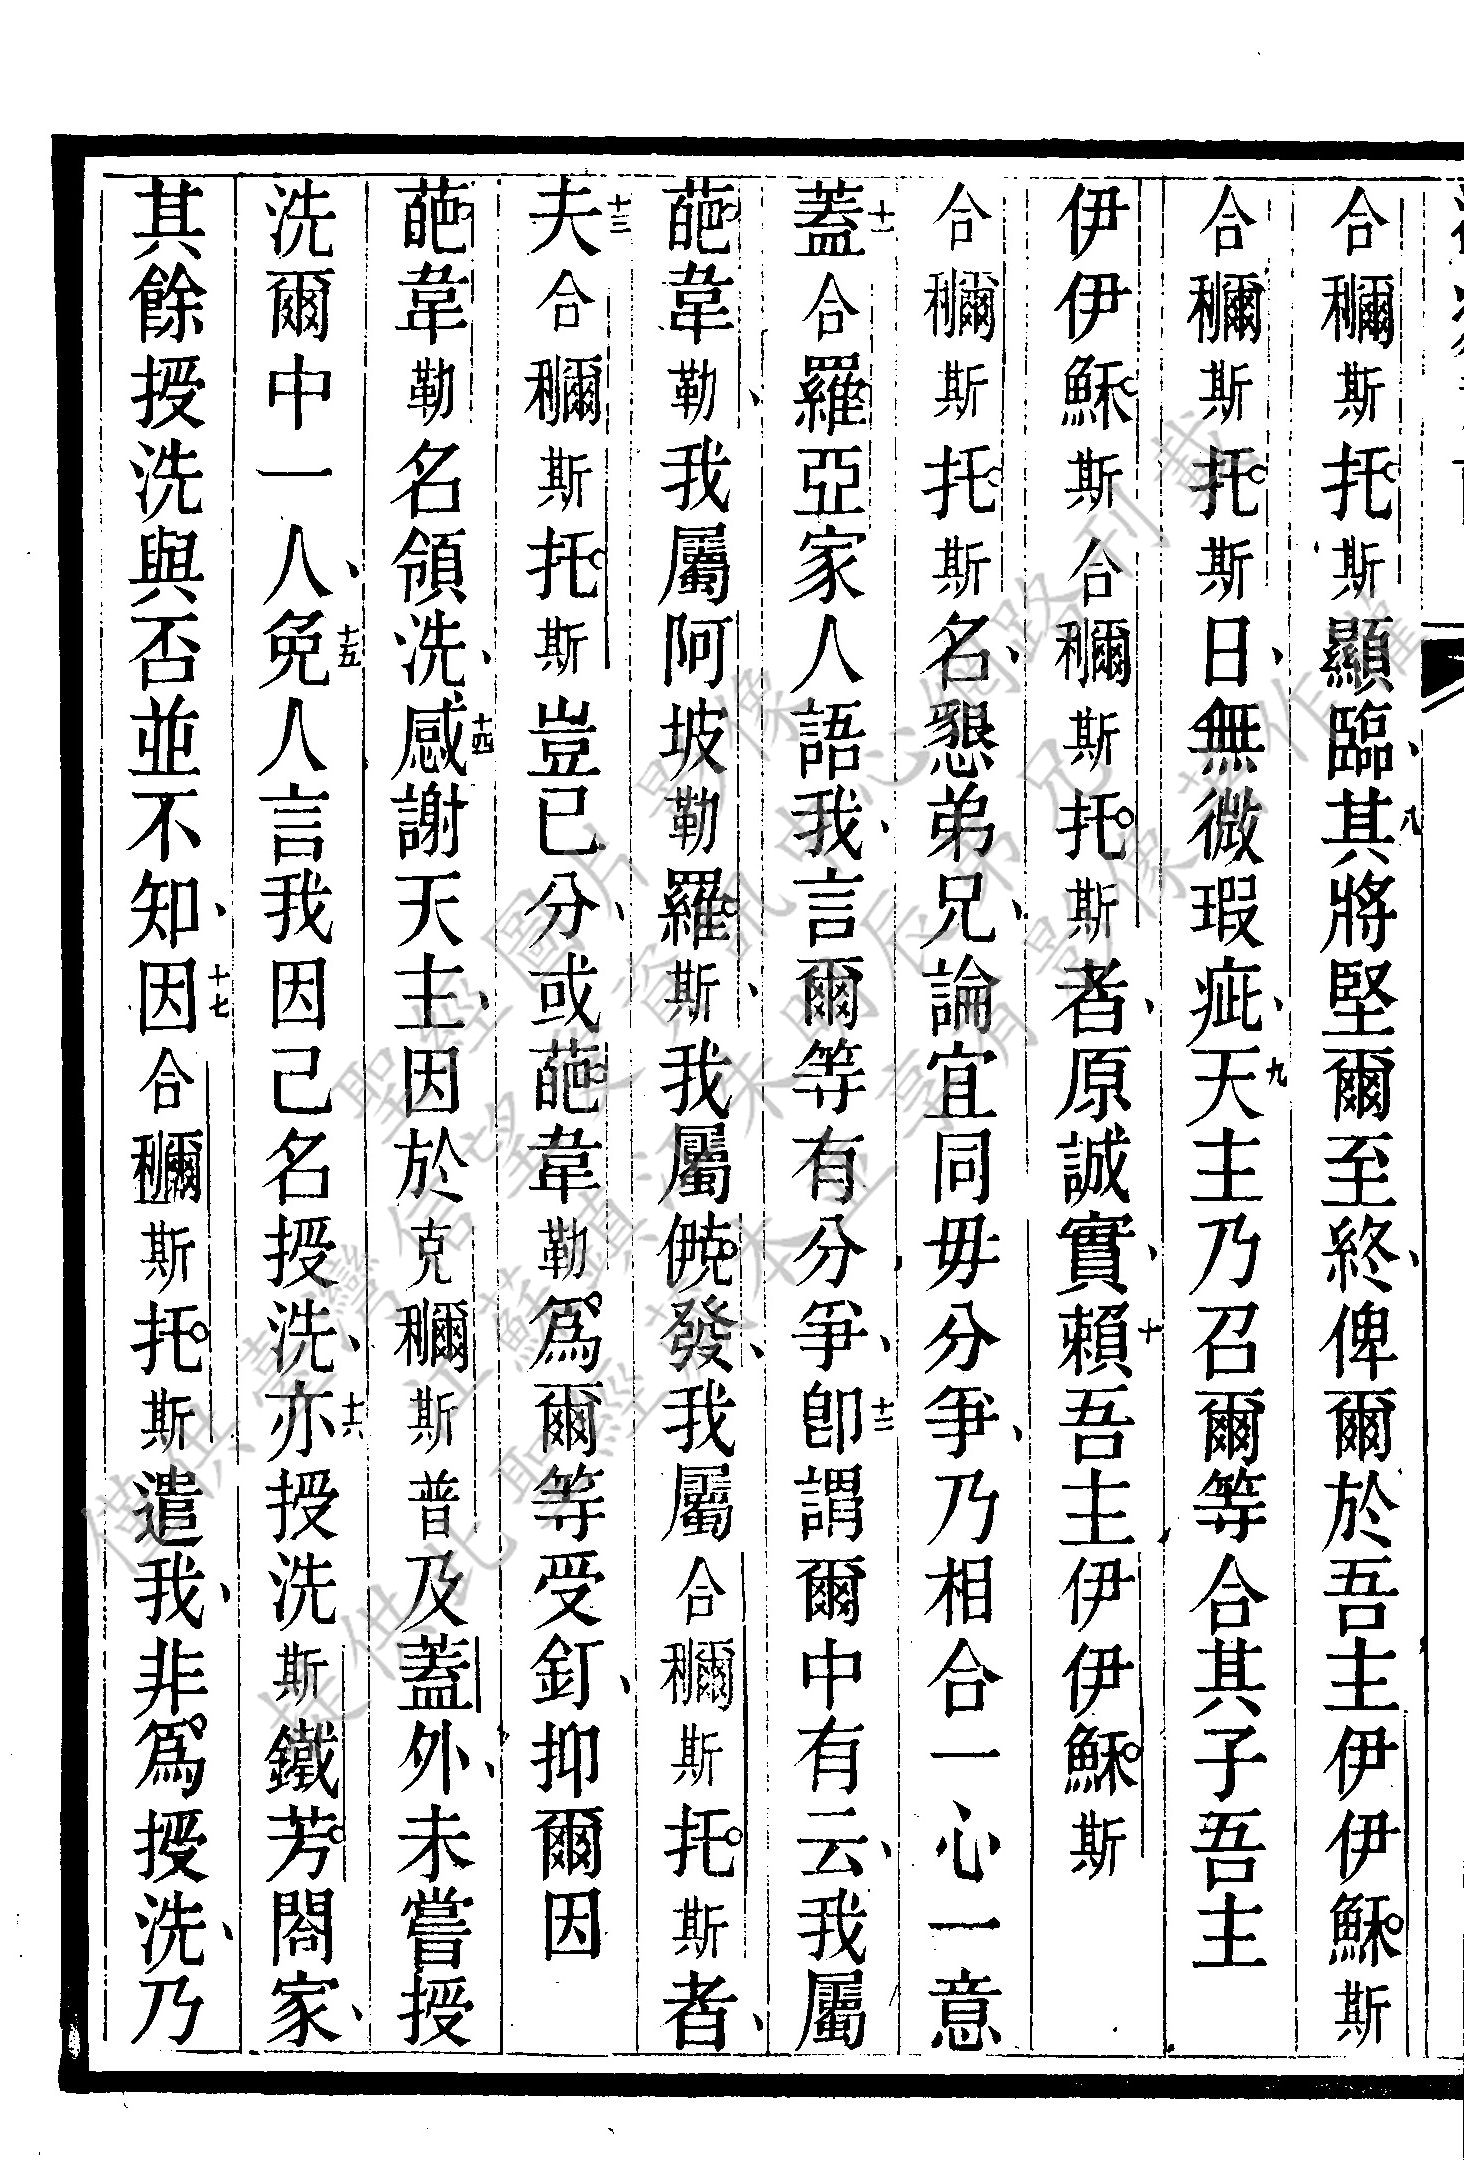 合⿰利爾斯托斯顯臨、八其將堅爾至終、俾爾於吾主伊伊穌斯
合⿰利爾斯托斯日、無微瑕疵、九天主乃召爾等合其子吾主
伊伊穌斯合⿰利爾斯托斯者、原誠實、十賴吾主伊伊穌斯
合⿰利爾斯托斯名、懇弟兄、論宜同毋分爭、乃相合一心一意
十一蓋合羅亞家人語我、言爾等有分爭、十二卽謂爾中有云、我屬
葩韋勒、我屬阿坡勒羅斯、我屬⿰伊克發、我屬合⿰利爾斯托斯者、
十三夫合⿰利爾斯托斯豈已分、或葩韋勒爲爾等受釘、抑爾因
葩韋勒名領洗、十四感謝天主、因於克⿰利爾斯普及蓋外、未嘗授
洗爾中一人、十五免人言我因己名授洗、十六亦授洗斯鐵芳閤家、
其餘授洗與否並不知、十七因合⿰利爾斯托斯遣我、非爲授洗、乃
聖經圖片影像
僅供臺灣信望愛資訊中心網路刊載